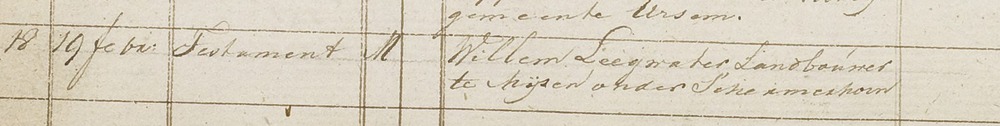 gemeente Ursem.
18 19 febr: Testament M Willem Leegwater Landbouwer
te Mijzen onder Schermerhorn